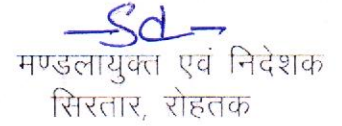 —Sd—
मण्डलायुक्त एवं निदेशक
सिरतार, रोहतक